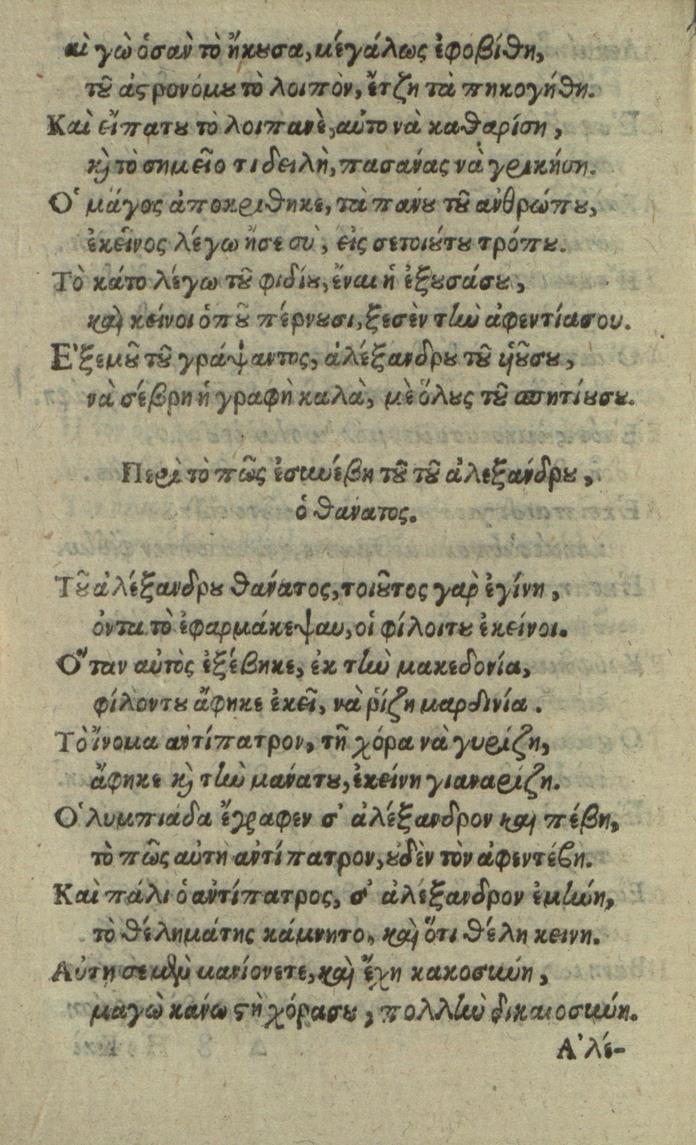 κὶ γὼ ὁσὰν τὸ ἤκουσα, μεγάλως ἐφοβίθη,
τοῦ ἀςρονόμου τὸ λοιπὸν, ἔτζη τὰ πηκογήθη.
Καὶ εἶπατου τὸ λοιπανὲ, αὐτο νὰ καθαρίση,
κὶ τὸ σημεῖο τι δειλὴ, πασανας νὰ γρικήση.
Ὁ μάγος ἀποκριθηκε, τὰ πανου τοῦ ανθρώπου,
ἐκεῖνος λέγω ἤσε σὺ, εἰς σετοιούτου τρόπου.
Τὸ κάτο λέγω τοῦ φιδίου, ἔναι ἡ ἐξουσάσου,
καὶ κείνοι ὁποῦ πέρνουσι, ξεσὲν τὴν ἀφεντίασου.
Ἐξεμοῦ τοῦ γράψαντος, ἀλέξανδρου τοῦ ἡοῦσου,
νὰ σέβρη ἡ γραφὴ καλὰ, μὲ ὅλους τοῦ σπητίουσου.
Περὶ τὸ πῶς ἐσυνέβη τοῦ τοῦ ἀλεξάνδρου,
ὁ θάνατος.
Τοῦ ἀλέξανδρου θανάτος, τοιοῦτος γαρ ἐγίνη,
ὀντα τὸ ἐφαρμάκεψαν, οἱ φίλοιτου ἐκείνοι.
Ὅταν αὐτὸς ἐξέβηκε, ἐκ τὴν μακεδονία,
φίλοντου ἄφηκε ἐκεῖ, νὰ ῥίζη μαρδινία.
Τὸ ἴνομα αντίπατρον, τῆ χόρα νὰ γυρίζη,
ἄφηκε κὶ τὴν μάνατου, ἐκείνη γιαναρίζη.
Ὁ λυμπιάδα ἔγραφεν σ' ἀλέξανδρον καὶ πέβη,
τὸ πῶς αὐτη αντίπατρον, οὐδὲν τὸν ἀφεντέβη.
Καὶ πάλι ὁ αντίπατρος, σ' ἀλέξανδρον ἐμήνη,
τὸ θέλημάτης κάμνητο, καὶ ὅτι θέλη κεινη.
Αὐτη σεμὲν μανίονετε, καὶ ἔχη κακοσύνη,
μαγὼ κάνω ςὴ χόρασου, πολλὴν δικαιοσύνην.
Ἀλέ-